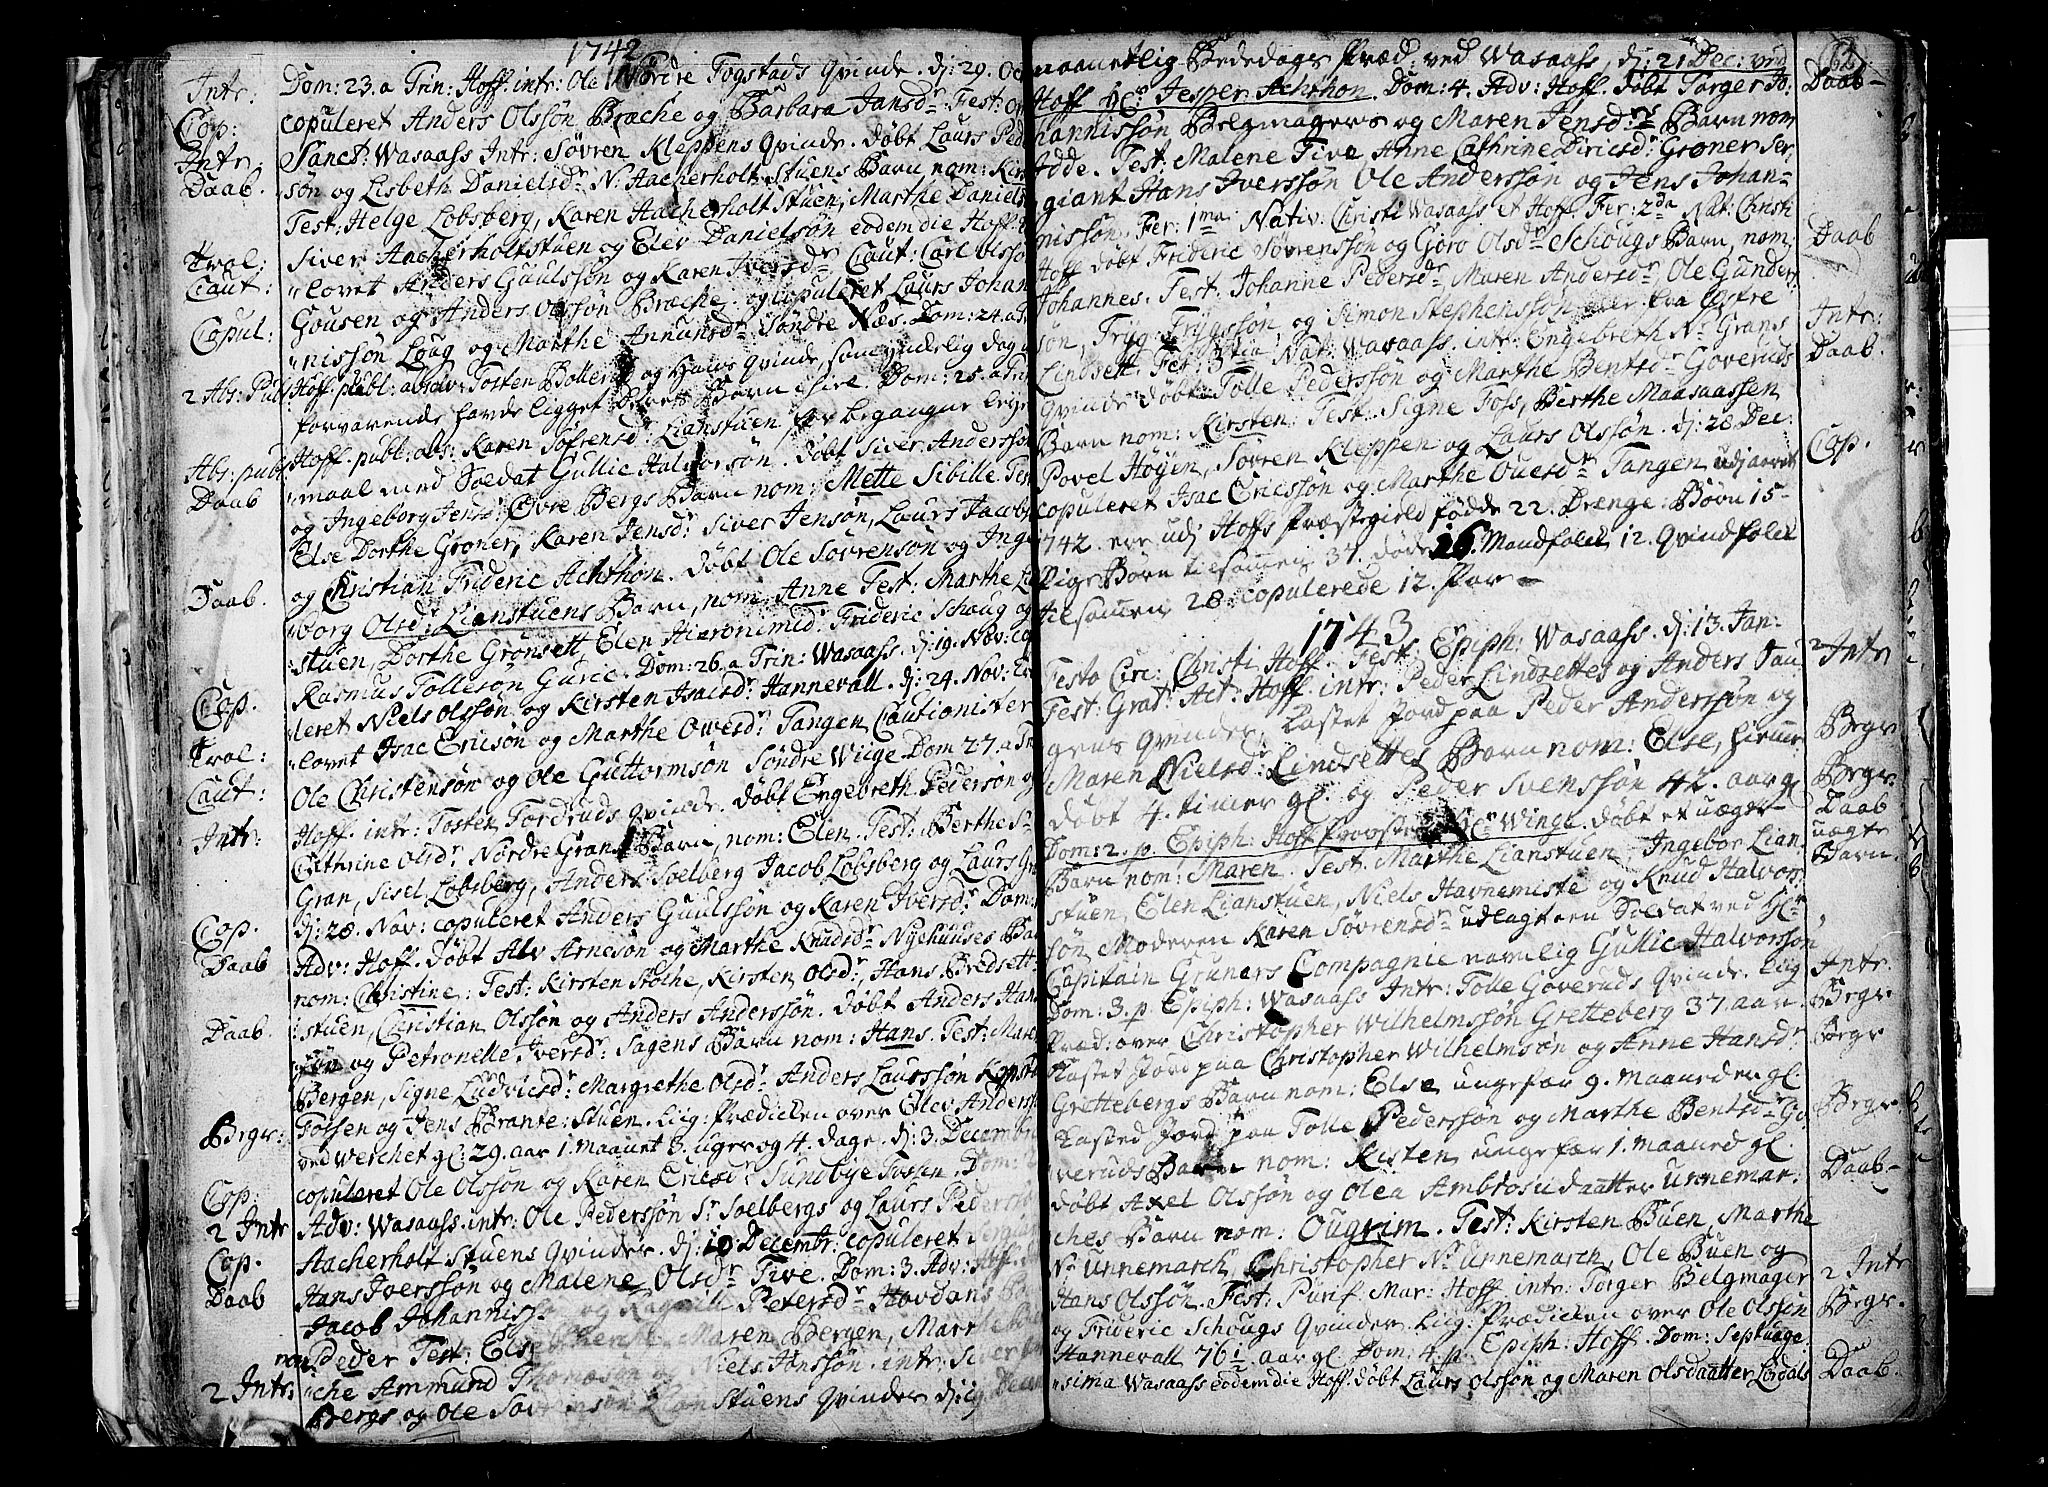 1742
Intr: Dom: 23. a Trin: Hoff. intr: Ole Nordre Fogstads Qvinde. dj: 29. Oct
Cop: copuleret Anders Olssøn Brøche og Barbara Jansdr: Fest: Om
Intr: Sanct: Wasaass Intr: Søvren Kleppens Qvinde. døbt Laurs Peder
Daab. søn og Lisbeth Danielsdr N. Aacherholt Stuens Barn nom: Kir
Test: Helge Lobsberg, Karen Aacherholt Stuen, Marthe Daniels
Siver Aacherholtstuen og Elev Danielsøn eodem die Hoff.
Trol: lovet Anders Gaulssøn og Karen Iversdr Caut: Carl Olssøn
Caut: Gousen og Anders Olssøn Brøche. og copuleret Laurs Johan
Copul: nissøn Loug og Marthe Amunsdr Søndre Næs. Dom: 24. a Tr
2 Abs: Publ Hoff. publ: absolv: Tosten Bollerud og Hans Qvinde, som
forvarende havde ligget deres Barn ihiel. Dom: 25. a Trin
Abs: publ Hoff. publ: abs: Karen Søfrensdr Lianstuen for begangne leje
Daab maal med Soldat Gullic Halvorsøn. døbt Siver Anderssøn
og Ingeborg Jensdr Øvre Bergs Barn nom: Mette Sibille. Test
Else Dorthe Grøner, Karen Jensdr Siver Jensøn, Laurs Jacobs
og Christian Frideric Achthon. døbt Ole Sovrensøn og Inge
Daab. borg Olsdr Lianstuens Barn, nom: Anne Test: Marthe Li
stuen, Dorthe Grønsett, Elen Hieronimid: Frideric Schoug og
Rasmus Tollesøn Gurie. Dom: 26. a Trin: Wasaass. dj: 19. Nov: cop
Cop. leret Niels Olssøn og Kirsten Isacsdr Hannevall. dj: 24. Nov:
Trol: lovet Isac Ericsøn og Marthe Owesdr Tangen Cautionister
Caut: Ole Christensøn og Ole Guttormsøn Søndre Wiige. Dom 27. a Tr
Intr: Hoff. intr: Tosten Fordruds Qvinde. døbt Engebreth Pedersøn og
Cathrine Olsdr Nordre Grans Barn, nom: Elen. Test: Berthe S
Gran, Sisel Lobsberg, Anders Soelberg Jacob Lobsberg og Laurs Gr
Cop. dj: 28. Nov: copuleret Anders Guulssøn og Karen Iversdr Dom:
Daab Adv: Hoff. døbt Alv Arnesøn og Marthe Knudsdr Nyehuuses Ba
nom: Christine: Test: Kirsten Stolhe, Kirsten Olsdr, Hans Bredsett
Daab. stuen, Christian Olssøn og Anders Anderssøn. døbt Anders Hans
søn og Petronelle Iversdr Sagens Barn nom: Hans. Test: Maren
Bergen, Signe Ludvicsdr: Margrethe Olsdr Anders Laurssøn
Fossen og Jens Brante: Stuen. Liig: Prædicken over Elev Anderss
Brgr: ved Werchet gl: 29. aar 1. maanet 3. uger og 4. dage. dj: 3. Decembr
Cop: copuleret Ole Olssøn og Karen Ericsdr Sundbye Fossen. Dom: 2
2 Intr Adv: Wasaass. intr: Ole Pederssøn Sr Soelbergs og Laurs Peders
Cop. Aacherholt Stuens Qvinder. dj: 10 Decembr: copuleret Sergiant
Daab Hans Iverssøn og Malene Olsdr Tive. Dom: 3. Adv: Hoff.
Jacob Johanniss og Ragnill Petersdr Hovdans Barn
nom Peder Test: Else Maren Bergen, Marthe
2 Intr: che Ammund Thomøsøn og Niels Jonssøn. intr: Siver
Bergs og Ole Sovrensøn Lianstuens Qvinder dj: 19. Decem
62
maanetlig Bededags Præd: ved Wasaass, dj: 21. Dec: ved
Daab- Hoff Hr Jesper Achthon. Dom: 4. Adv: Hoff. døbt Torger Jo
hannissøn Belgmagers og Maren Jensdrs Barn nom
Adde. Test: Malene Tive Anne Cathrine Diricsd: Grøner Ser,
giant Hans Iverssøn Ole Anderssøn og Jens Johan-
nissøn. Fer: 1ma Nativ: Christi Wasaass et Hoff. Fer: 2da Nat: Christi
Daab Hoff døbt Frideric Søvrenssøn og Goro Olsdr Schougs Barn, nom:
Johannes. Test: Johanne Pedersdr Maren Andersdr Ole Gunders
søn, Tryg Trygssøn, og Simon Stephenssøn eller fra Østre
Intr: Lindsett. Fer: 3tia Nat: Wasaass. intr: Engebreth Nr Grans
Daab. Qvinde døbt Tolle Pederssøn og Marthe Bentsdr Goveruds
Barn nom: Kirsten. Test: Signe Fols, Berthe Maasaassen
Povel Høyen, Søvren Kleppen og Laurs Olssøn. dj: 28 Dec:
Cop. copuleret Isac Ericssøn og Marthe Ouesdr Tangen udj aaret
1742. ere udj Hofs Præstegield fødde 22. Drenge: Børn 15-
Pige Børn tilsamen 37. døde 16. Mandfolck 12. Qvindfolck
tilsamen 28. copulerede 12. par-
1743
Festo Circ: Christi Hoff. Fest: Epiph: Wasaass. dj: 13. Jan:
2 Intr Fest: Grat: Act: Hoff. intr: Peder Lindsettes og Anders Sau
gens Qvinder, Kastet Jord paa Peder Anderssøn og
Brgr Maren Nielsdr Lindsettes Barn nom: Else, hiemme
Brgr. døbt 4. timer gl. og Peder Svenssøn 42. aar gl
Daab uægte Barn. Dom: 2. p. Epiph: Hoff Provsten Hr Winge. døbt et uægte
Barn nom: Maren. Test: Marthe Lianstuen, Ingebor Lian
stuen, Elen Lianstuen, Niels Havnemiste og Knud Halvors
søn, Moderen Karen Søvrensdr udlagt een Soldat ved Hr
Capitain Grunars Compagnie navnlig Gullic Halvorssøn
Intr. Dom: 3. p. Epiph: Wasaass Intr: Tolle Goveruds Qvinde. Liig
Brgr Præd: over Christopher Wilhelmssøn Gretteberg 37. aar.
Brgr Kastet Jord paa Christopher Wilhelmsøn og Anne Hansdr
Grettebergs Barn nom: Else ungefær 9. maaneder gl.
Brgr Kasted Jord paa Tolle Pederssøn og Marthe Bentsdr Go
veruds Barn nom: Kisten ungefær 1. maaned gl.
Daab- døbt Axel Olssøn og Olea Ambrosudaatter Unnemar:
ches Barn nom: Ougrim. Test: Kirsten Buen, Marthe
Nr Unnemarch, Christopher Nr Unnemarch, Ole Buen og
2 Intr Hans Olssøn. Fest: Purif: Mar: Hoff. intr: Torger Belgmager
Brgr. og Frideric Schougs Qvinder. Liig: Prædicken over Ole Olssøn
Hannevall 76½. aar gl. Dom: 4. p. Epiph: Hoff. Dom: Septuage:
Daab. sima Wasaass eodem die Hoff: døbt Laurs Olssøn og Maren Olsdaatter Lørdals